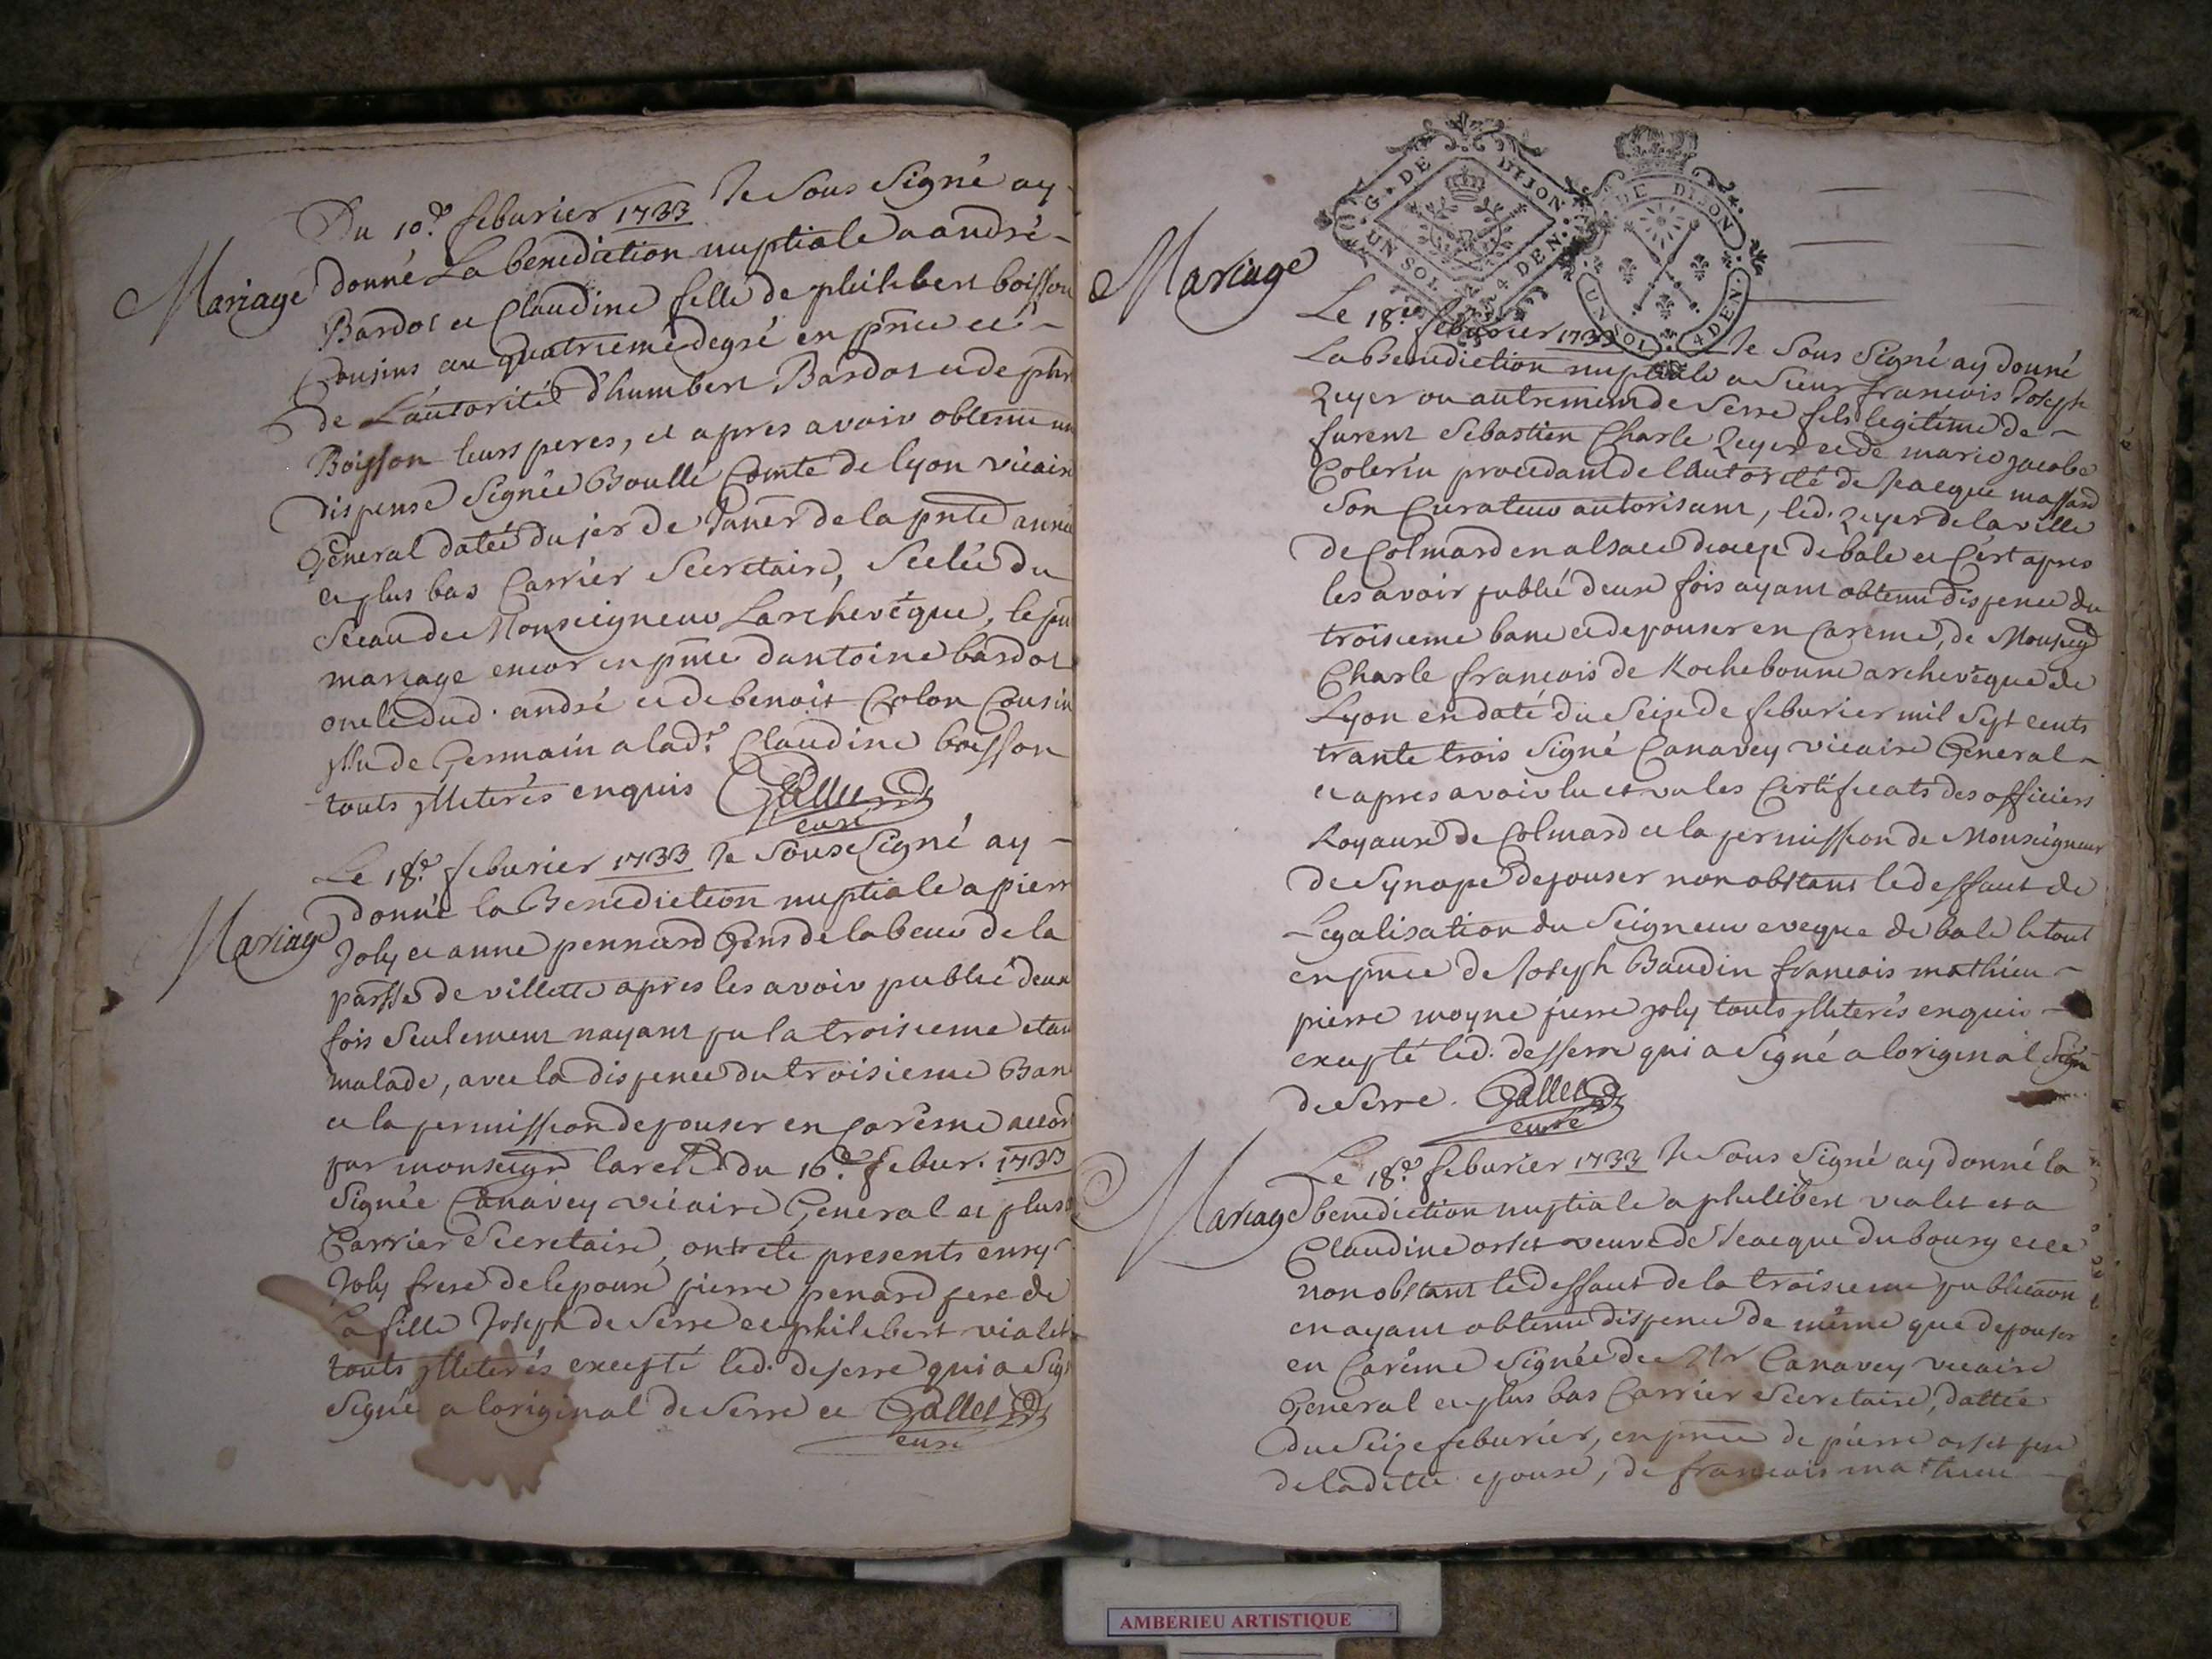 Du 10e. feburier 1733 Je Sous Signé ay
Mariage
donné La benediction nuptiale a andré
Bardot et Claudine fille de philibert boisson
Cousins au quatrieme degré en pnce et
de L'autorité d'humbert Bardot et de phr
Boisson leurs peres, et apres avoir obtenu un
dispense Signée Boullé Comte de lyon vicaire
General datée du jer de Janer de la pnte année
et plus bas Carrier Secretaire, Scelée du
Sceau de Monseigneur Larchevêque, le pnt
mariage encor en pnce dantoine bardot
oncle dud. andré et de benoit Colon Cousin
yssu de Germain a lade. Claudine boisson
touts ylleterés enquis Gallet
curé
Le 18e. feburier 1733 Je Sous Signé ay
Mariage
donné la Benediction nuptiale a pierre
Joly et anne pennard Gens de labeur de la
parsse de villette apres les avoir publié deux
fois Seulement nayant pu la troisieme etant
malade, avec la dispence du troisieme Ban
et la permission depouser en Carême accor
par monseigr larche. du 16e. febur. 1733
Signée Canavey vicaire General et plus
Carrier Secretaire, ont ete presents
Joly frere de lepoux pierre penard pere de
la fille Joseph de Serre et philibert vialet
touts ylleterés excepté led. deserre qui a Sig
Signé a loriginal de Serre et Gallet
curé
G. DE DIJON
UN SOL 4 DEN.
DE DIJON
UN SOL 4 DEN.
Mariage
Le 18e. feburier 1733 Je Sous Signé ay donné
La Benediction nuptiale a Sieur francois Joseph
Zeyer ou autrement de Serre fils legitime de
furent Sebastien Charle Zeyer et de marie jacobe
Colerin procedant de l'Autorité de Jacque massard
Son Curateur autorisant, led. Zeyer de la ville
de Colmard en alsace diocese de bale et C'ert apres
les avoir publié deux fois ayant obtenu dispence du
troisieme banc et depouser en Careme, de Monseigr
Charle francois de Rochebonne archevêque de
Lyon en daté du Seize de feburier mil Sept cents
trante trois Signé Canavey vicaire General
et apres avoir lu et vu les Certificats des officiers
Royaux de Colmard et la permission de Monseigneur
de Synope depouser nonobstant le deffaut de
Legalisation du Seigneur eveque de bale le tout
en pnce de Joseph Baudin francois mathieu
pierre moyne pierre joly touts ylleterés enquis
excepté led. desserre qui a Signé a loriginal Signé
de Serre. Gallet
curé
Le 18e. feburier 1733 Je Sous Signé ay donné la
Mariage
benediction nuptiale a philibert vialet et a
Claudine orset veuve de Jeacque Dubourg et ce
nonobstant le deffaut de la troisieme publicaon
en ayant obtenu dispence de même que depouser
en Carême Signée de Mr Canavey vicaire
General et plus bas Carrier Secretaire, dattée
du Seize feburier, en pnce de pierre orset pere
de laditte epouse, de francois mathieu
AMBERIEU ARTISTIQUE